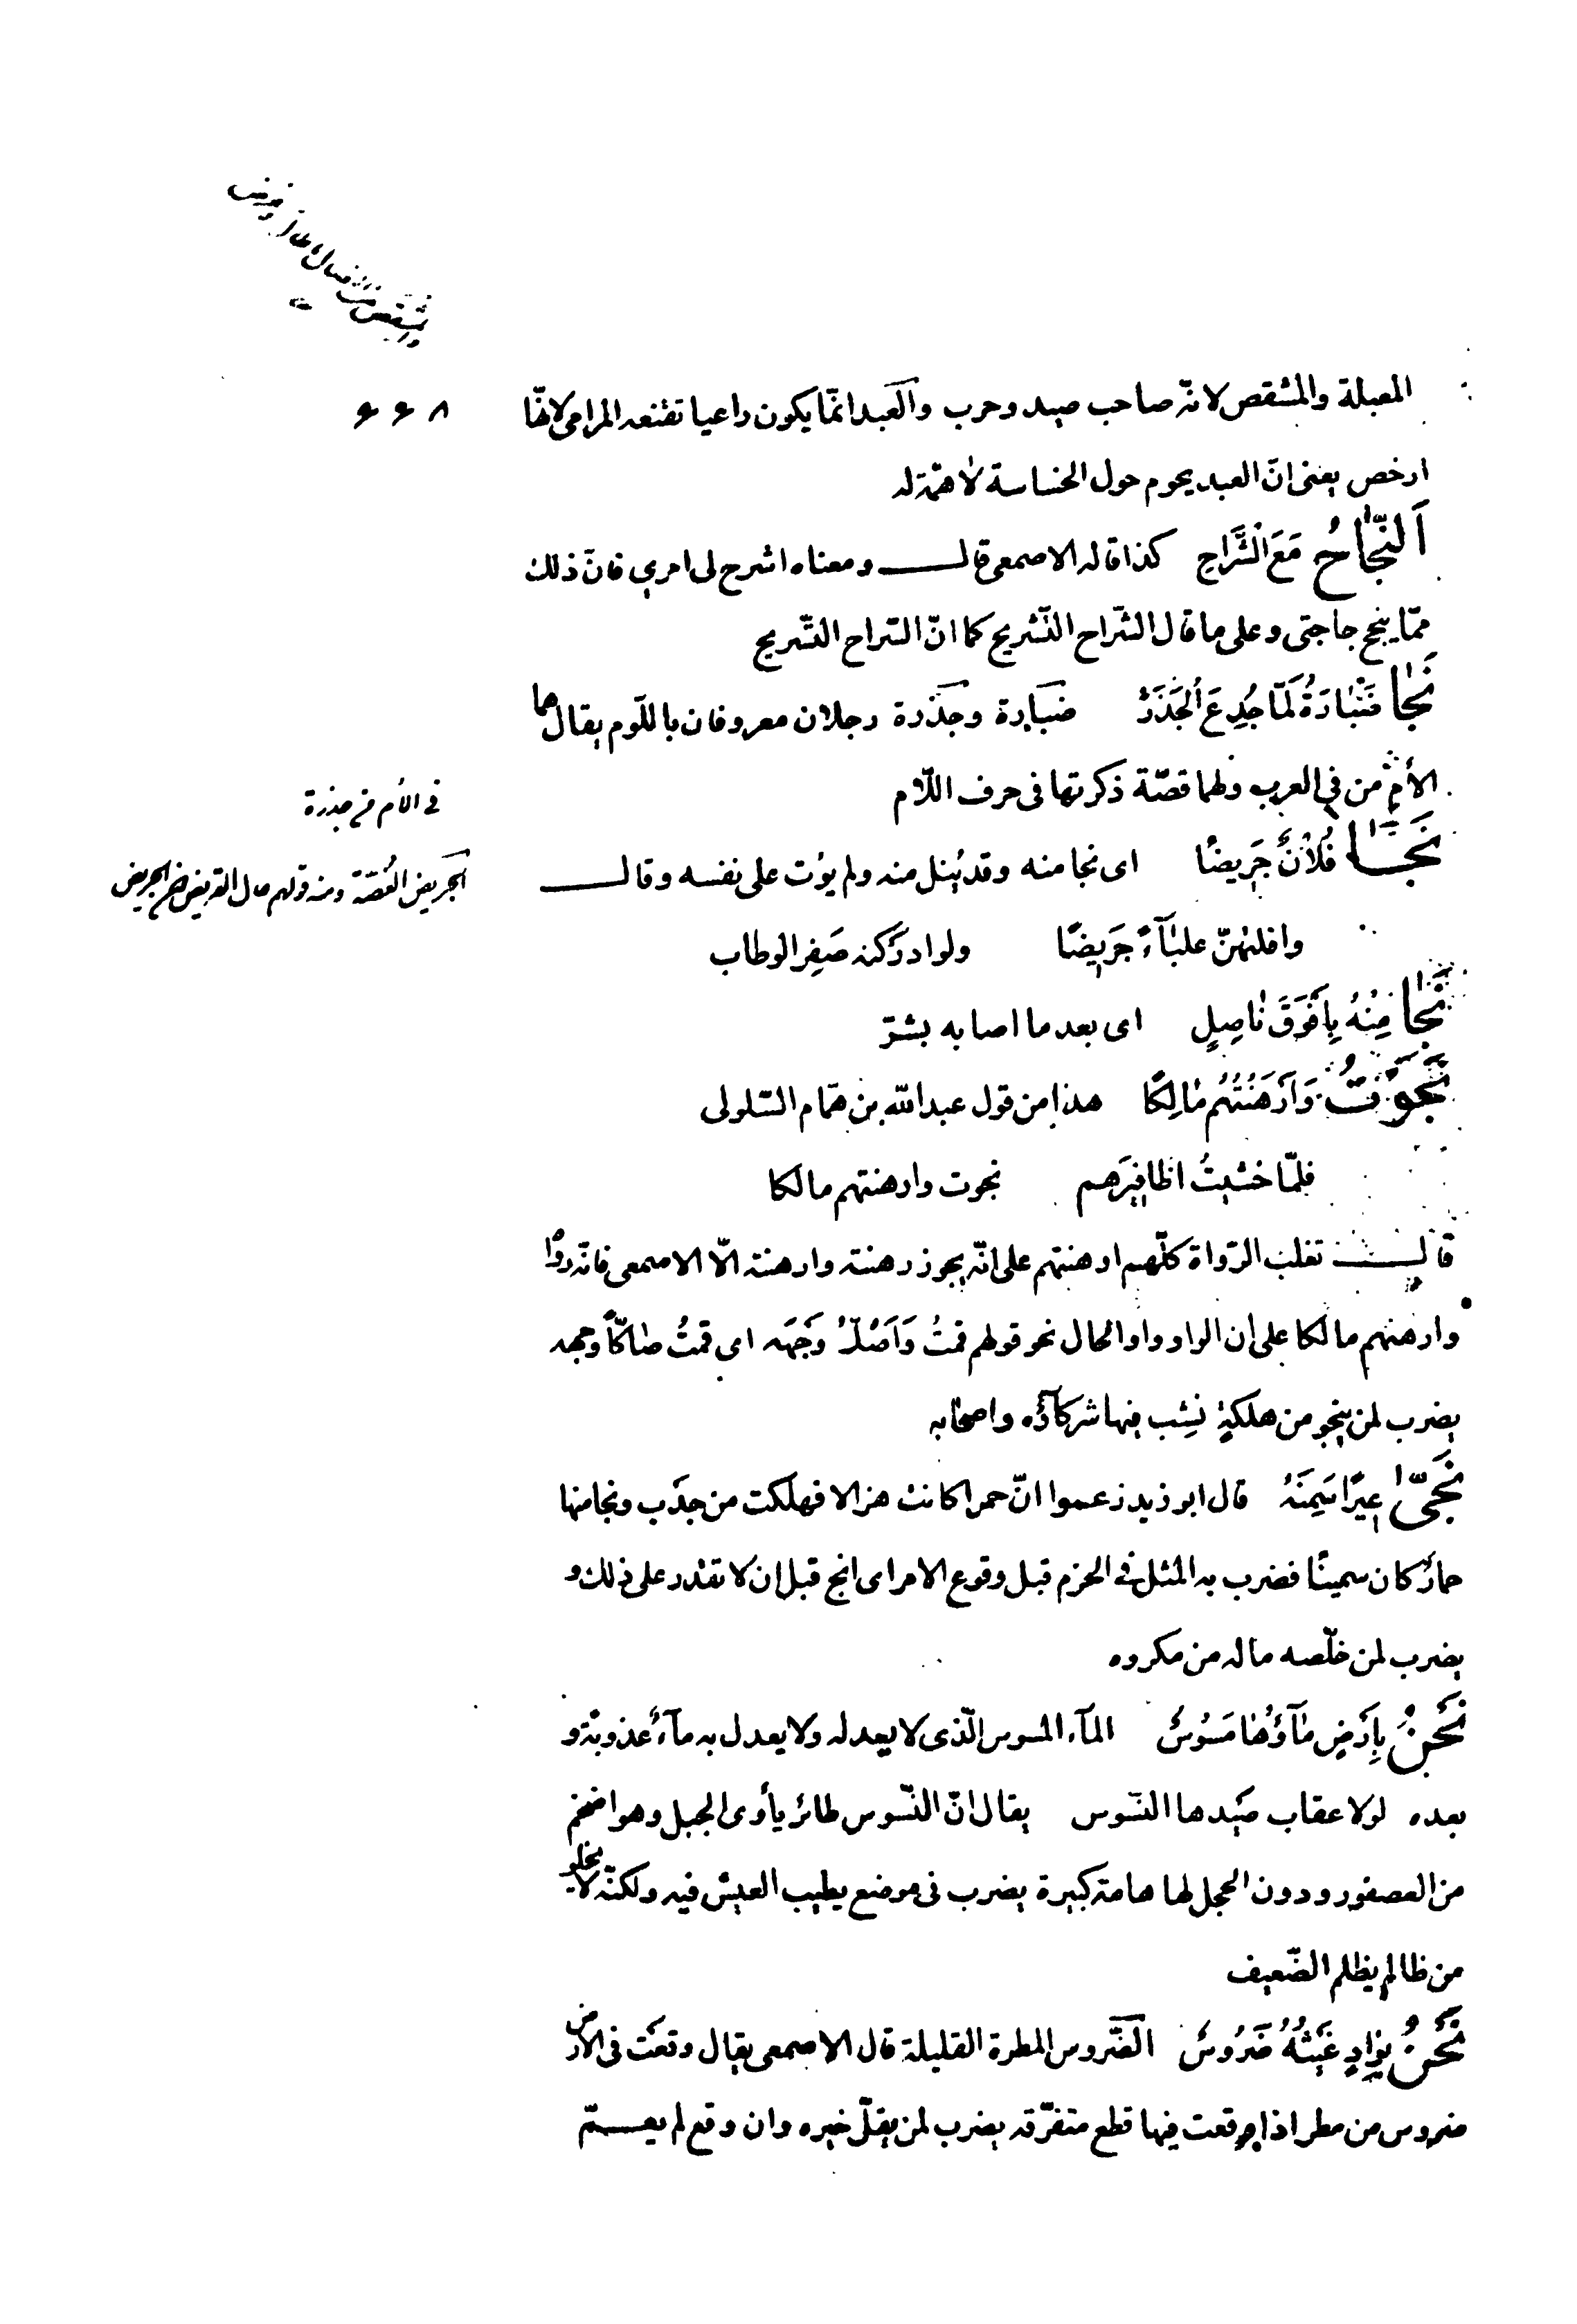 المعبلة والمشقص لانّه صاحب صيد وحرب والعبد انّما يكون راعيا تقنعه المرامى لانّها
٨ ۶ ۶
ارخص يعنى انّ العبد يحوم حول الخساسة لا همّة له
اَلنَّجَاحُ مَعَ الشَّرَاحِ كذا قاله الاصمعى قال ومعناه اشرح لى امرى فانّ ذلك
ممّا ينجح حاجتى وعلى ما قال الشّراح التّشريح كما انّ السّراح التّسريح
نَجَا ضَبَارَةُ لَمَّا جُدِعَ الجَدَرَةُ ضبارة وجدرة رجلان معروفان باللّوم يقال هما
الأم من فى العرب ولهما قصّة ذكرتها فى حرف اللّام
فى الأم من جدرة
نَجَا فُلَانٌ جَرِيضًا اى نجا منه وقد نيل منه ولم يؤت على نفسه وقال
الجريض الغُصّة ومنه قولهم حال القريض دون الجريض
وافلتهنّ علباءٌ جَرِيضًا ولو ادركنه صَفِر الوطاب
نَجَا مِنْهُ بِأَفْوَقَ نَاصِلٍ اى بعد ما اصابه بشرّ
نَجَوْتُ وَاَرْهَنْتُهُم مَالِكًا هذا من قول عبد الله بن همّام السّلولى
فلمّا خشيتُ اظافيرَهم نجوت وارهنتهم مالكا
قال ثعلب الرّواة كلّهم ارهنتهم على انّه يجوز رهنته وارهنته الّا الاصمعى فانّه رواه
وارهنهم مالكا على ان الواو واو الحال نحو قولهم قمتُ وَاَصُكُّ وَجْهَه اى قمتُ صاكّاً وجهه
يضرب لمن ينجو من هلكةٍ نَشِب فيها شركاؤه واصحابه
نَجَّى عِيرًا سِمَنُهُ قال ابو زيد زعموا انّ حمرا كانت هزالا فهلكت من جدب ونجا منها
حمار كان سمينًا فضرب به المثل فى الحزم قبل وقوع الامر اى انج قبل ان لا تقدر على ذلك و
يضرب لمن خلّصه ماله من مكروه
نَحْنُ بِاَرْضٍ مَاؤُهَا مَسُوسُ الماء المسوس الّذى لا يعدله ولا يعدل به ماءٌ عذوبة و
بعده لولا عقاب صيدها النسّوس يقال انّ النسّوس طائر يأوى الجبل وهو اضخم
من العصفور ودون الحجل لها هامة كبيرة يضرب فى موضع يطيب العيش فيه ولكنّه لا يخلو
من ظالم يظلم الضّعيف
نَحْنُ بِوَادٍ غَيْثُهُ ضَرُوسُ الضّروس المطرة القليلة قال الاصمعى يقال وقعت فى الارض
ضروس من مطر اذا وقعت فيها قطع متفرّقه يضرب لمن يقلّ خيره وان وقع لم يعمّ